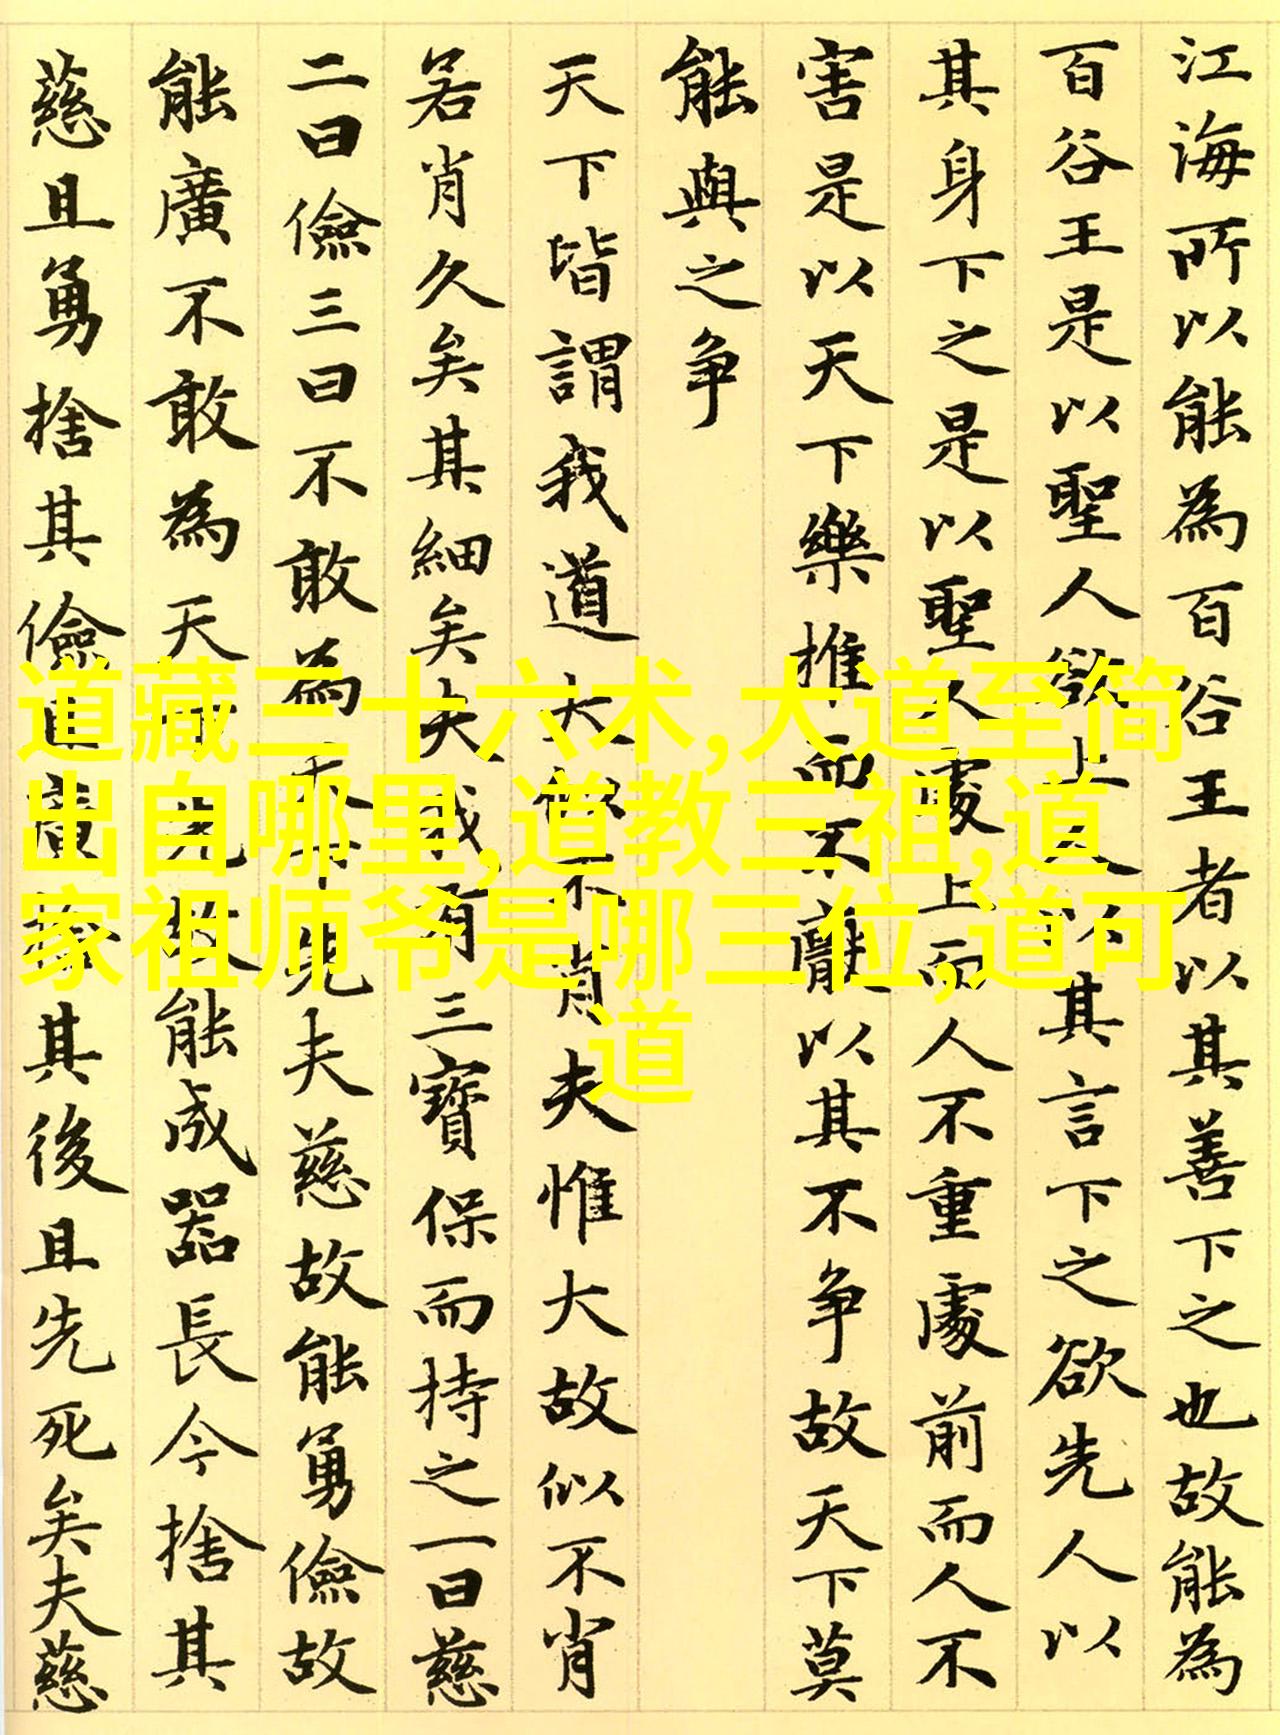 江海所以能為百谷王者以其善下之也故能為
百谷王是以聖人欲上人以其言下之欲先人以
其身下之是以聖人處上而人不重處前而人不
害是以天下樂推而不厭以其不争故天下莫
能與之争
天下皆謂我道大似不肖夫惟大故似不肖
若肖久矣其細矣夫我有三寶保而持之一曰慈
二曰儉三曰不敢為天下先夫慈故能勇儉故
能廣不敢為天下先故能成器長今捨其
慈且勇捨其儉且廣捨其後且先死矣夫慈
道藏三十六术,大道至简
出自哪里,道教三祖,道
家祖师爷是哪三位,道可
道